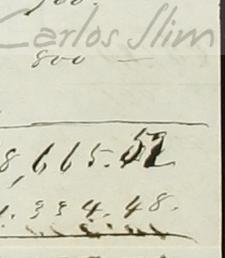 Carlos Slim
800 —
8,665.52
1.334.48.